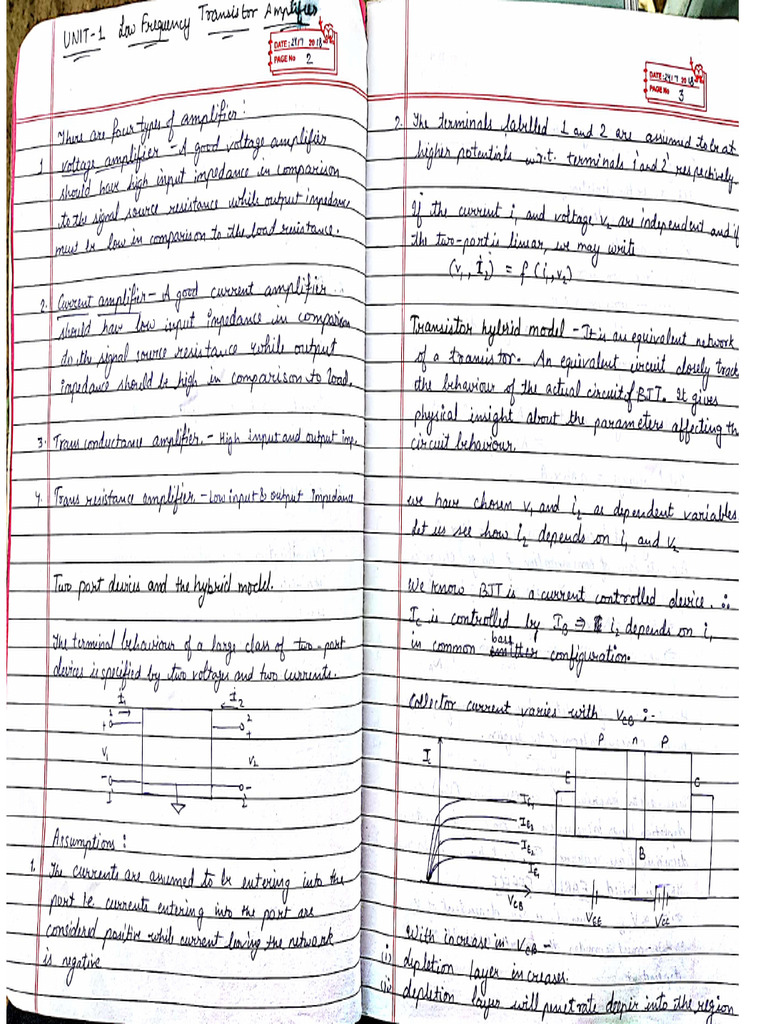 UNIT-1 Low Frequency Transistor Amplifier
DATE: 24/7 2018
PAGE No 2
There are four types of amplifier:
1. Voltage amplifier - A good voltage amplifier
should have high input impedance in comparison
to the signal source resistance while output impedance
must be low in comparison to the load resistance.
2. Current amplifier - A good current amplifier
should have low input impedance in comparison
to the signal source resistance while output
impedance should be high in comparison to load.
3. Trans conductance amplifier. - High input and output imp.
4. Trans resistance amplifier - Low input & output Impedance
Two port devices and the hybrid model.
The terminal behaviour of a large class of two-port
devices is specified by two voltages and two currents.
I1 I2
1 2
+ +
V1 V2
- -
1' 2'
Assumptions:
1. The currents are assumed to be entering into the
port ie currents entering into the port are
considered positive while current leaving the network
is negative
DATE: 24/7 2018
PAGE No 3
2. The terminals labelled 1 and 2 are assumed to be at
higher potentials w.r.t. terminals 1' and 2' respectively.
If the current i1 and voltage v2 are independent and if
the two-port is linear, we may write
(v1, i2) = f (i1, v2)
Transistor hybrid model - It is an equivalent network
of a transistor. An equivalent circuit closely track
the behaviour of the actual circuit of BJT. It gives
physical insight about the parameters affecting th
circuit behaviour.
we have chosen v1 and i2 as dependent variables
let us see how i2 depends on i1 and v2
We know BJT is a current controlled device. ∴
IC is controlled by IB ⇒ i2 depends on i1
in common base configuration.
Collector current varies with VCB :-
I
IE4
IE3
IE2
IE1
VCB
P n P
E C
B
VEE VCC
With increase in VCB -
(i) depletion layer increases.
(ii) depletion layer will penetrate deeper into the region